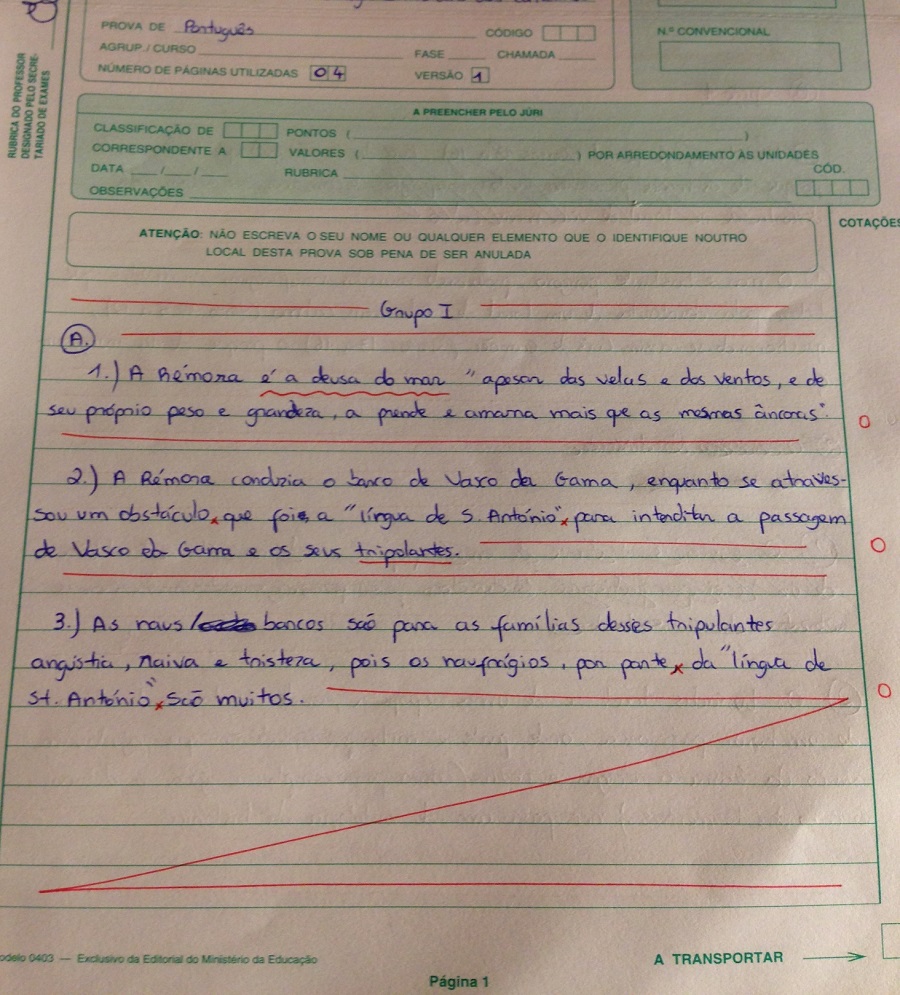 PROVA DE Português CÓDIGO
N.º CONVENCIONAL
AGRUP./ CURSO FASE CHAMADA
NÚMERO DE PÁGINAS UTILIZADAS 04 VERSÃO 1
RUBRICA DO PROFESSOR
DESIGNADO PELO SECRE-
TARIADO DE EXAMES
A PREENCHER PELO JÚRI
CLASSIFICAÇÃO DE PONTOS ( )
CORRESPONDENTE A VALORES ( ) POR ARREDONDAMENTO ÀS UNIDADES
DATA / / RUBRICA CÓD.
OBSERVAÇÕES
COTAÇÕES
ATENÇÃO: NÃO ESCREVA O SEU NOME OU QUALQUER ELEMENTO QUE O IDENTIFIQUE NOUTRO
LOCAL DESTA PROVA SOB PENA DE SER ANULADA
Grupo I
A.
1.) A Rémora é a deusa do mar "apesar das velas e dos ventos, e de
seu próprio peso e grandeza, a prende e amarra mais qe as mesmas âncoras". 0
2.) A Rémora conduzia o barco de Vasco da Gama, enquanto se atraves-
sou um obstáculo x que foi a "língua de S. António" x para interditar a passagem
de Vasco da Gama e os seus tripolantes. 0
3.) As naus/ barcos são para as famílias desses tripulantes
angústia, raiva e tristeza, pois os naufrágios, por parte x da "língua de
St. António" x são muitos. 0
odelo 0403 — Exclusivo da Editorial do Ministério da Educação
A TRANSPORTAR
Página 1